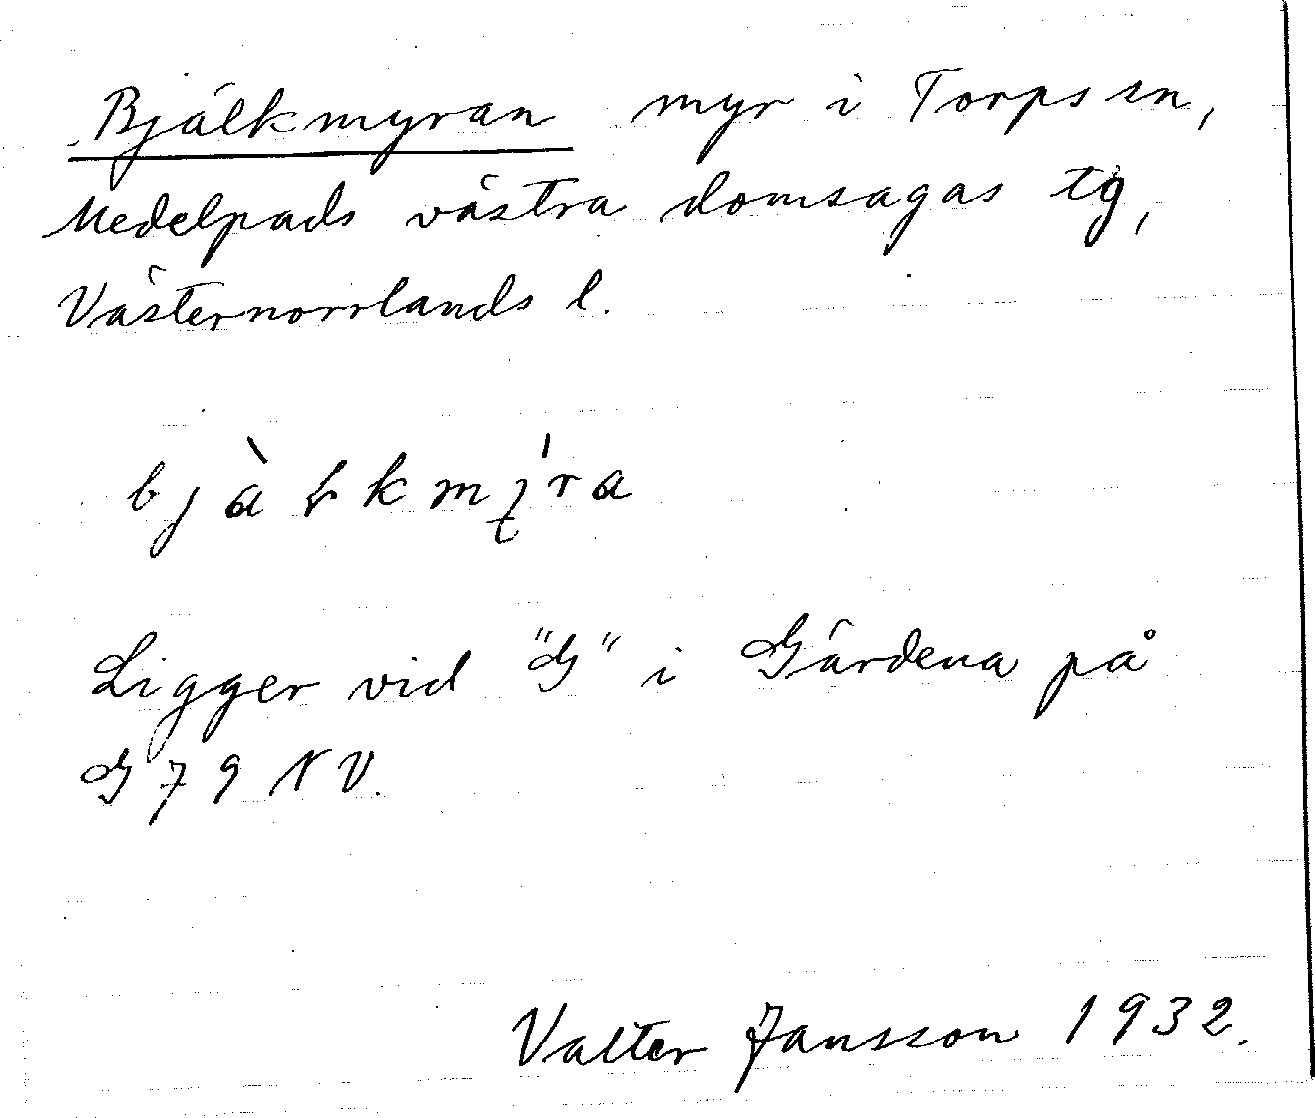 Bjälkmyran myr i Torps sn,
Medelpads västra domsagas tg,
Västernorrlands l.
Ligger vid "G" i Gärdena på
G 79 NV.
Valter Jansson 1932.